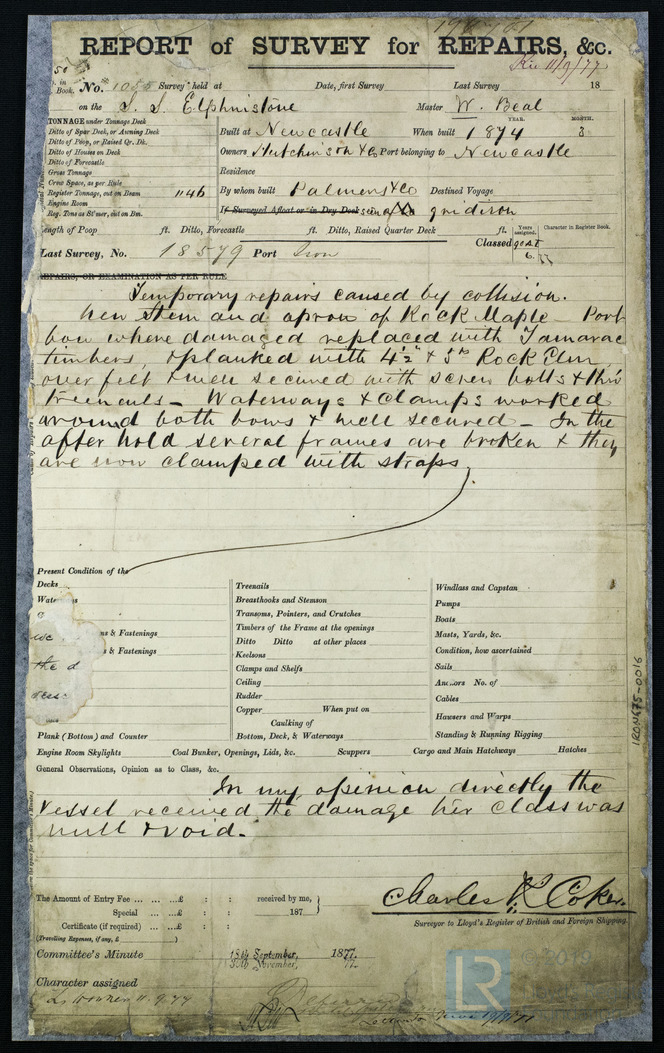 REPORT of SURVEY for REPAIRS, &c.
Rec 11/9/77
No. 1055 Survey held at Date, first Survey Last Survey 18
on the S. S. Elphinstone Master W. Beal
TONNAGE under Tonnage Deck
Ditto of Spar Deck, or Awning Deck
Ditto of Poop, or Raised Qr. Dk.
Ditto of Houses on Deck
Ditto of Forecastle
Gross Tonnage
Crew Space, as per Rule
Register Tonnage, cut on Beam 1146
Engine Room
Reg. Tons as St'mer, cut on Bm.
YEAR. MONTH.
Built at Newcastle When built 1874 3
Owners Hutchinson & Co Port belonging to Newcastle
Residence
By whom built Palmers & Co Destined Voyage
If Surveyed Afloat or in Dry Dock on a gridiron
Length of Poop ft. Ditto, Forecastle ft. Ditto, Raised Quarter Deck ft.
Years assigned. Character in Register Book.
Classed 90 A1
6. 77
Last Survey, No. 18579 Port Iron
REPAIRS, OR EXAMINATION AS PER RULE
Temporary repairs caused by collision.
New Stem and apron of Rock Maple - Port
bow where damaged replaced with Tamarac
timbers, & planked with 4½" & 5" Rock Elm
over felt & well secured with screw bolts & thro
treenails - Waterways & Clamps worked
around both bows & well secured - In the
after hold several frames are broken & they
are now clamped with straps
Present Condition of the
Decks
Waterways
& Fastenings
& Fastenings
the d
Plank (Bottom) and Counter
Treenails
Breasthooks and Stemson
Transoms, Pointers, and Crutches
Timbers of the Frame at the openings
Ditto Ditto at other places
Keelsons
Clamps and Shelfs
Ceiling
Rudder
Copper When put on
Caulking of
Bottom, Deck, & Waterways
Windlass and Capstan
Pumps
Boats
Masts, Yards, &c.
Condition, how ascertained
Sails
Anchors No. of
Cables
Hawsers and Warps
Standing & Running Rigging
Engine Room Skylights Coal Bunker, Openings, Lids, &c. Scuppers Cargo and Main Hatchways Hatches
General Observations, Opinion as to Class, &c.
In my opinion directly the
Vessel received the damage her Class was
null & void.
The Amount of Entry Fee ... ... ...£ : : received by me,
Special ... ...£ : : 187
Certificate (if required) ... ...£ : :
(Travelling Expenses, if any, £ )
Charles R Coker.
Surveyor to Lloyd's Register of British and Foreign Shipping.
Committee's Minute 15th September, 1877.
30th November, 77.
Character assigned
IRON675-0016
LR
© 2019